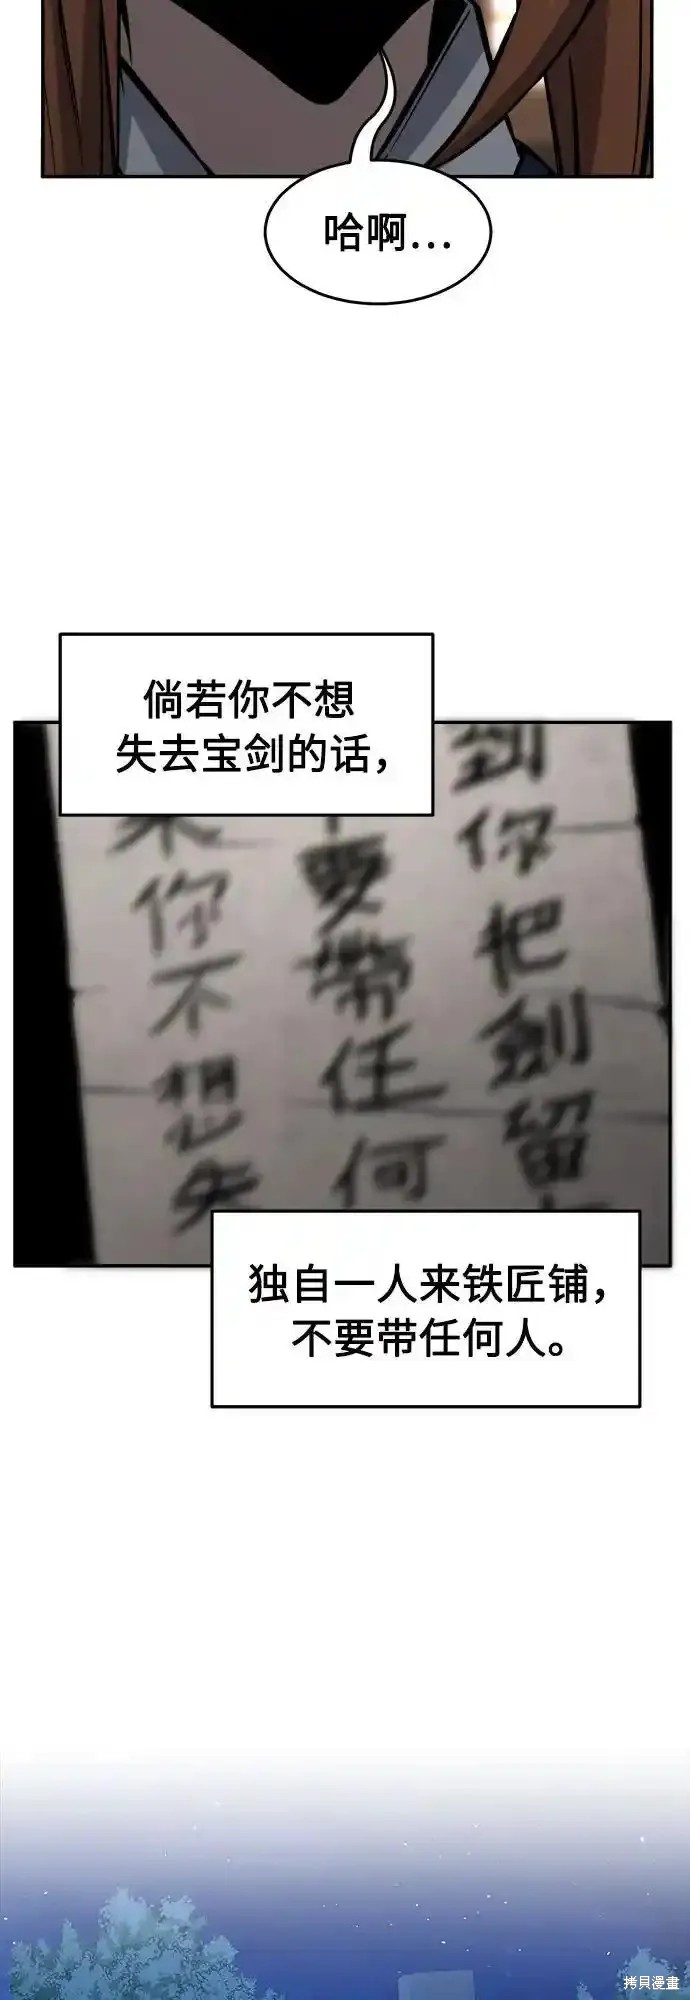 哈啊...
倘若你不想
失去宝剑的话，
到你把劍留
要帶任何
你不想失
独自一人来铁匠铺，
不要带任何人。
拷貝漫畫